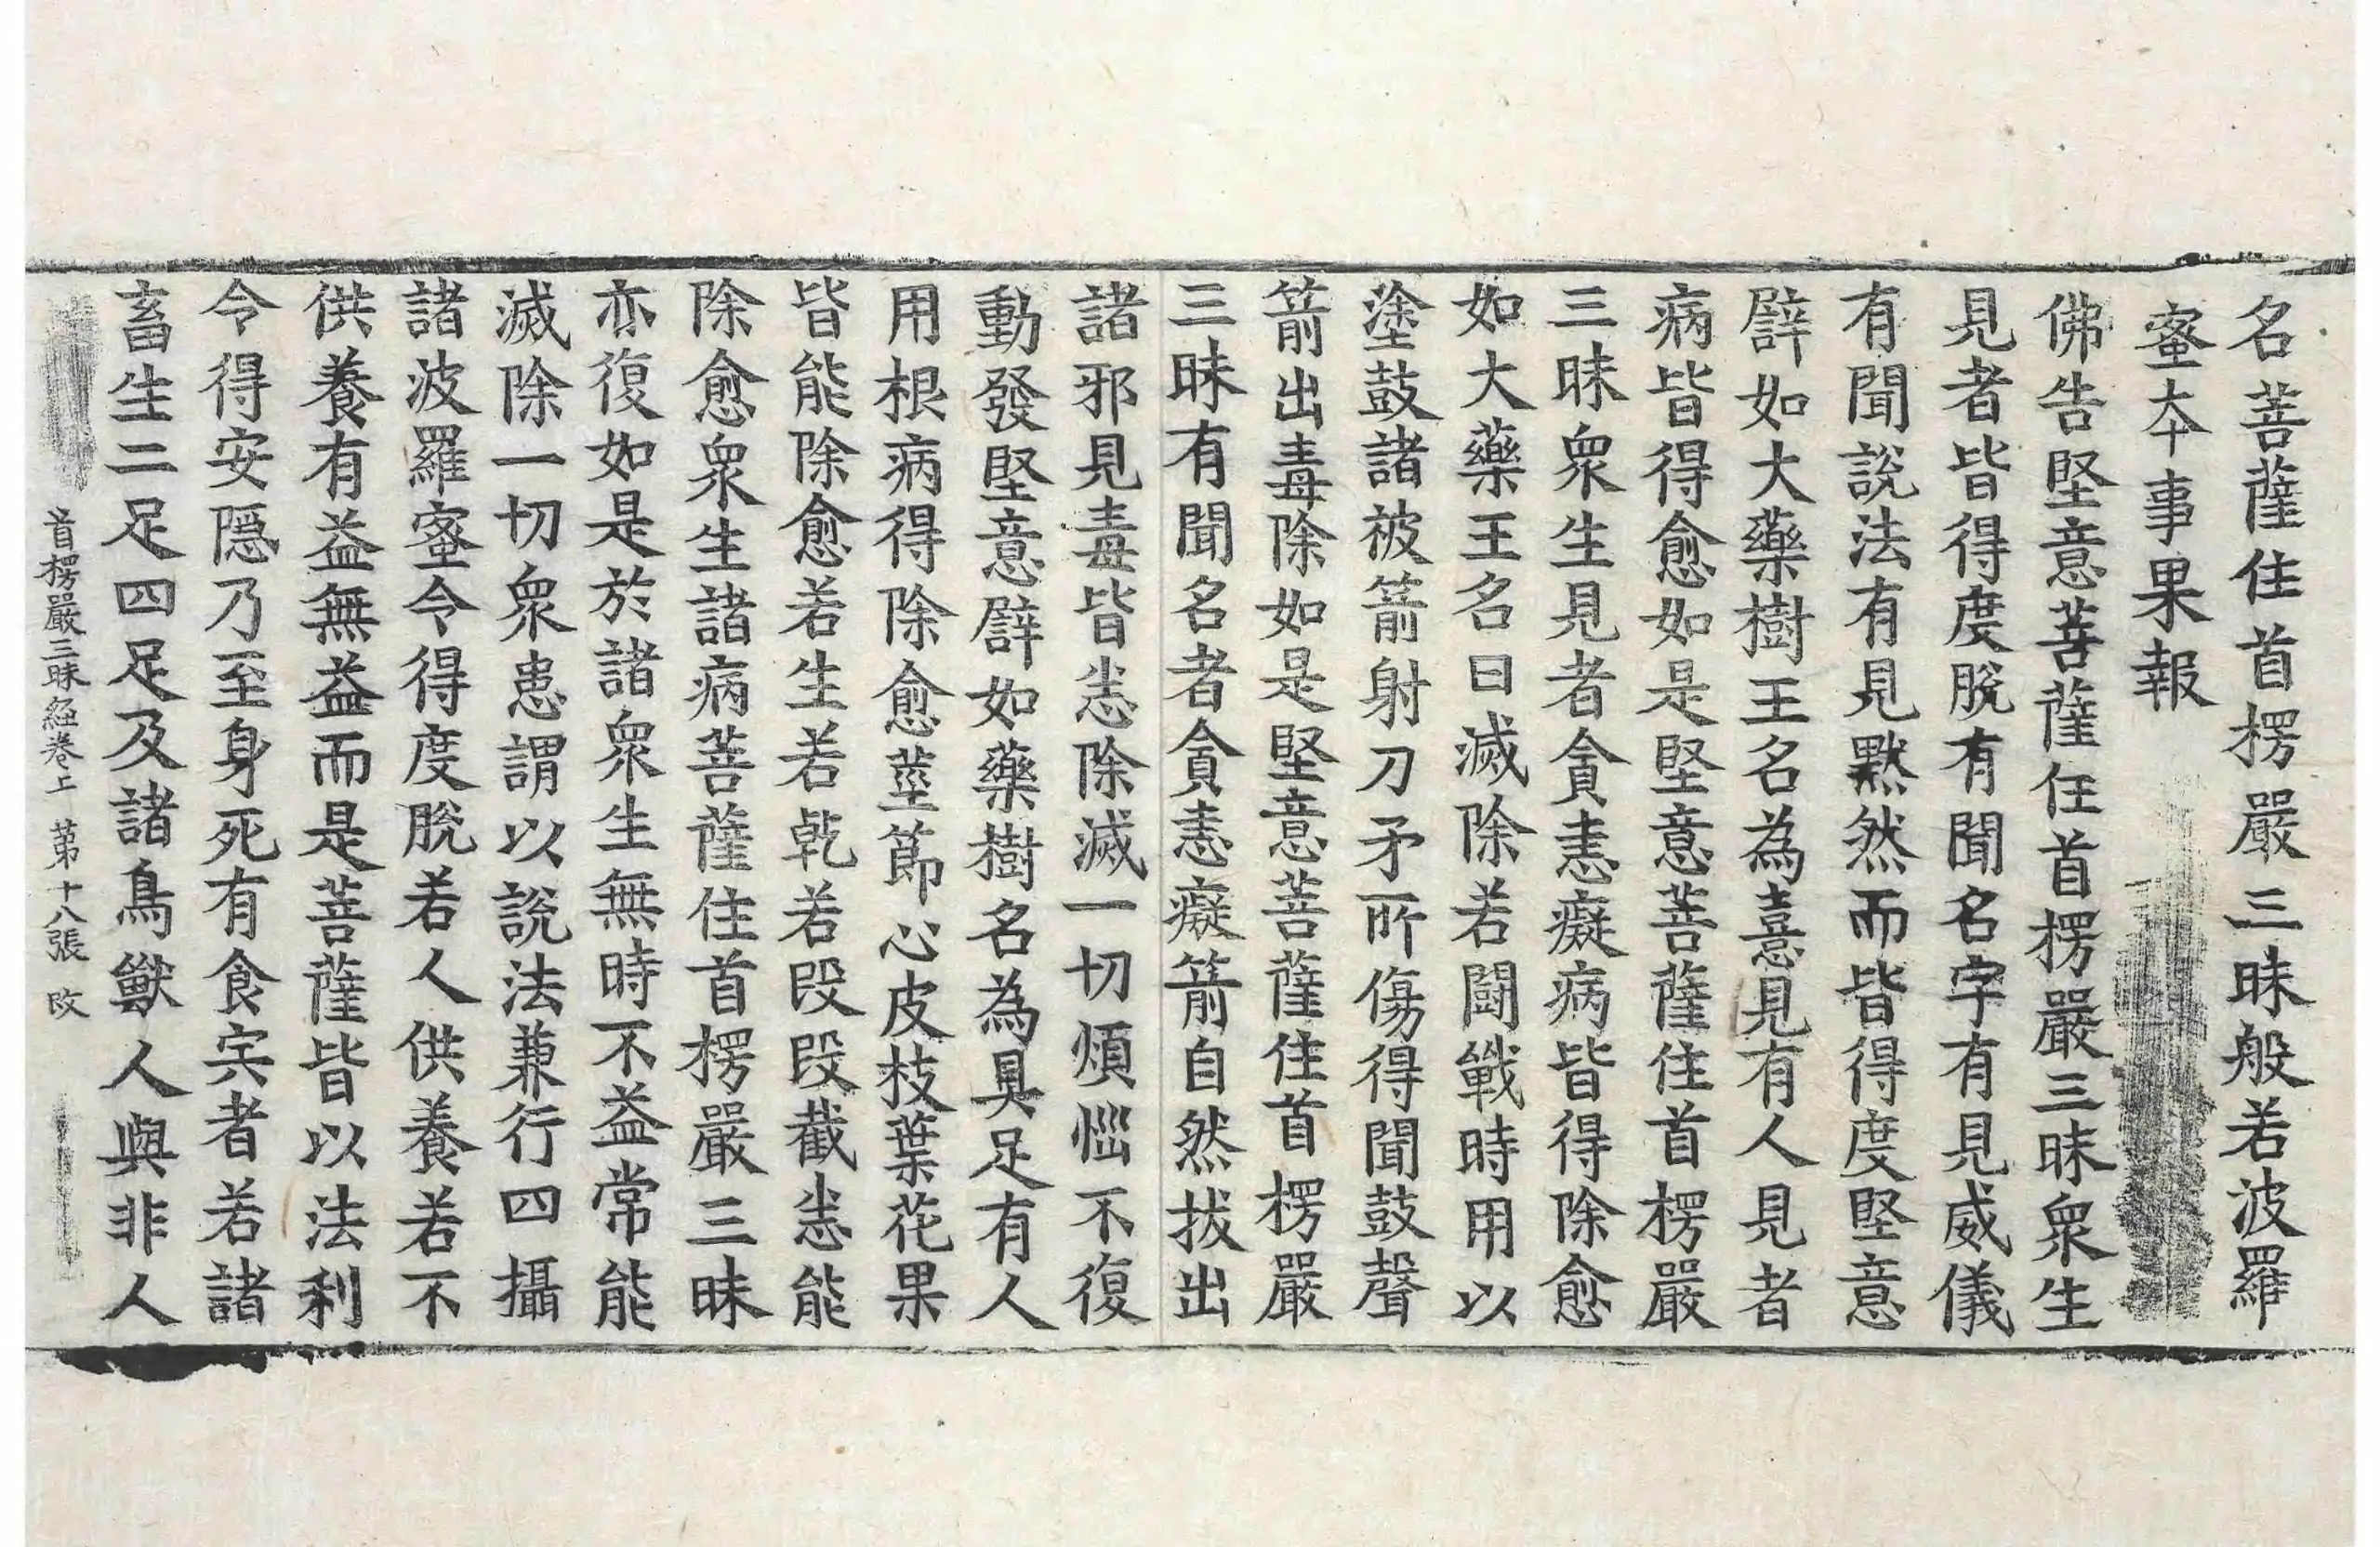 名菩薩住首楞嚴三昧般若波羅
蜜夲事果報
佛告堅意菩薩住首楞嚴三昧衆生
見者皆得度脫有聞名字有見威儀
有聞說法有見默然而皆得度堅意
譬如大藥樹王名為憙見有人見者
病皆得愈如是堅意菩薩住首楞嚴
三昧衆生見者貪恚癡病皆得除愈
如大藥王名曰滅除若鬪戰時用以
塗鼓諸被箭射刀矛所傷得聞鼓聲
箭出毒除如是堅意菩薩住首楞嚴
三昧有聞名者貪恚癡箭自然拔出
諸邪見毒皆悉除滅一切煩惱不復
動發堅意譬如藥樹名為具足有人
用根病得除愈莖節心皮枝葉花果
皆能除愈若生若乾若段段截悉能
除愈衆生諸病菩薩住首楞嚴三昧
亦復如是於諸衆生無時不益常能
滅除一切衆患謂以說法兼行四攝
諸波羅蜜令得度脫若人供養若不
供養有益無益而是菩薩皆以法利
令得安隱乃至身死有食宍者若諸
畜生二足四足及諸鳥獸人與非人
首楞嚴三昧経卷上 第十八張 改